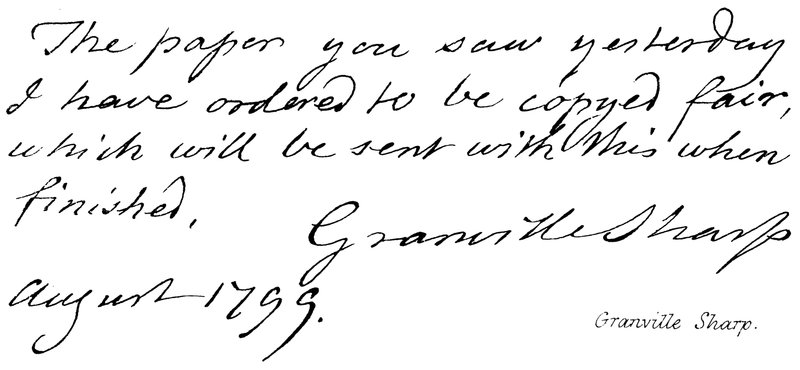 The paper you saw yesterday
I have ordered to be copyed fair,
which will be sent with this when
finished,
Granville Sharp
August 1799.
Granville Sharp.